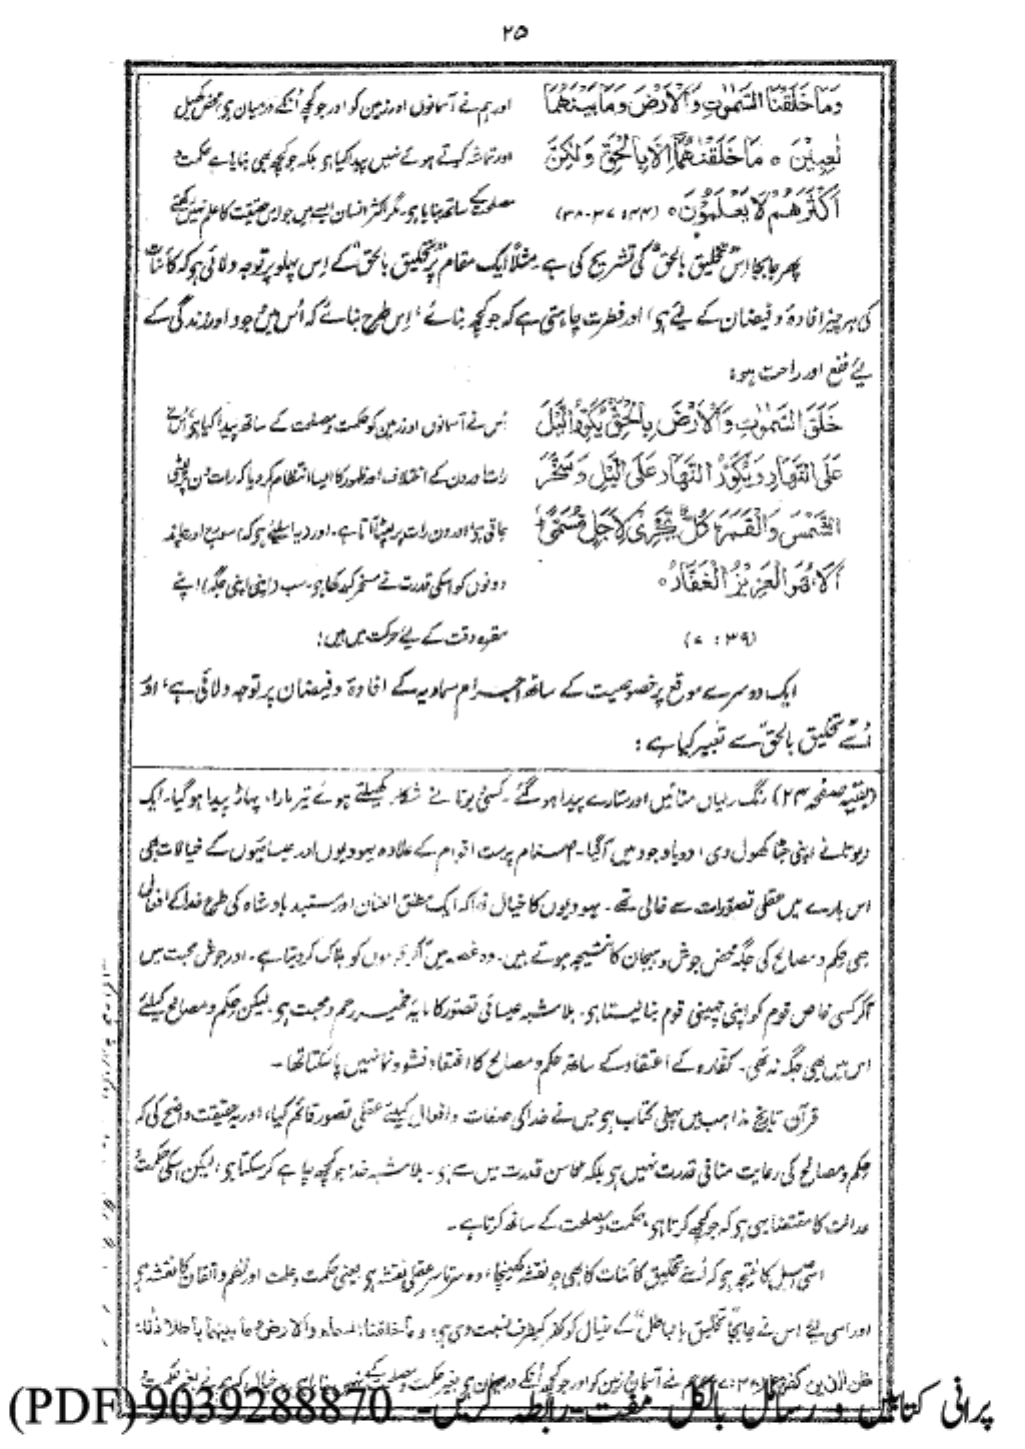 ۲۵
وَمَا خَلَقْنَا السَّمٰوٰتِ وَالْاَرْضَ وَمَا بَيْنَهُمَا
لٰعِبِيْنَ ○ مَا خَلَقْنٰهُمَآ اِلَّا بِالْحَقِّ وَلٰكِنَّ
اَكْثَرَهُمْ لَا يَعْلَمُوْنَ ○ (۴۴: ۳۷-۳۸)
اور ہم نے آسمانوں اور زمین کو اور جو کچھ اُنکے درمیان ہی محض کھیل
اور تماشہ کرتے ہوئے نہیں پیدا کیا ہو بلکہ جو کچھ بھی بنایا ہے حکمت و
مصلحت کے ساتھ بنایا ہو۔ مگر اکثر انسان ایسے ہیں جو اس حقیقت کا علم نہیں رکھتے
پھر جابجا اس "تخلیق بالحق" کی تشریح کی ہے۔ مثلاً ایک مقام پر "تخلیق بالحق" کے اس پہلو پر توجہ دلائی ہو کہ کائنات
کی ہر چیز افادۂ و فیضان کے لئے ہو، اور فطرت چاہتی ہے کہ جو کچھ بنائے، اِس طرح بنائے کہ اُس میں وجود اور زندگی کے
لئے نفع اور راحت ہو:
خَلَقَ السَّمٰوٰتِ وَالْاَرْضَ بِالْحَقِّ يُكَوِّرُ الَّيْلَ
عَلَى النَّهَارِ وَيُكَوِّرُ النَّهَارَ عَلَى الَّيْلِ وَسَخَّرَ
الشَّمْسَ وَالْقَمَرَ كُلٌّ يَّجْرِيْ لِاَجَلٍ مُّسَمًّى
اَلَا هُوَ الْعَزِيْزُ الْغَفَّارُ ○
(۳۹: ۷)
اُس نے آسمانوں اور زمین کو حکمت و مصلحت کے ساتھ پیدا کیا ہو، اُس نے
رات اور دن کے اختلاف اور ظہور کا ایسا انتظام کر دیا کہ رات دن پر لپٹی
جاتی ہو اور دن رات پر لپٹا آتا ہے۔ اور (یہ اسلئے ہو کہ) سورج اور چاند
دونوں کو اسکی قدرت نے مسخر کر رکھا ہو۔ سب (اپنی اپنی جگہ) اپنے
مقررہ وقت کے لئے حرکت میں ہیں:
ایک دوسرے موقع پر خصوصیت کے ساتھ اجرام سماویہ کے افادۂ و فیضان پر توجہ دلائی ہے، اور
اُسے "تخلیق بالحق" سے تعبیر کیا ہے:
(بقیہ صفحہ ۲۴) رنگ رلیاں منائیں اور ستارے پیدا ہو گئے۔ کسی دیوتا نے شکار کھیلتے ہوئے تیر مارا، پہاڑ پیدا ہو گیا۔ ایک
دیوتا نے اپنی جٹا کھول دی، دریا وجود میں آگیا۔ اصنام پرست اقوام کے علاوہ یہودیوں اور عیسائیوں کے خیالات بھی
اس بارے میں عقلی تصوّرات سے خالی تھے۔ یہودیوں کا خیال تھا کہ ایک مطلق العنان اور مستبد بادشاہ کی طرح خدا کے افعال
بھی حِکم و مصالح کی جگہ محض جوش و ہیجان کا نتیجہ ہوتے ہیں۔ وہ غصہ میں آکر قوموں کو ہلاک کر دیتا ہے۔ اور جوش محبت میں
آکر کسی خاص قوم کو اپنی چہیتی قوم بنا لیتا ہو۔ بلاشبہ عیسائی تصوّر کا مایۂ خمیر رحم و محبت ہو، لیکن حِکم و مصالح کیلئے
اس میں بھی جگہ نہ تھی۔ کفّارہ کے اعتقاد کے ساتھ حکم و مصالح کا اعتقاد نشو و نما نہیں پا سکتا تھا۔
قرآن تاریخ مذاہب میں پہلی کتاب ہو جس نے خدا کی صفات و افعال کیلئے عقلی تصور قائم کیا، اور یہ حقیقت واضح کی کہ
حِکم و مصالح کی رعایت منافی قدرت نہیں ہو بلکہ محاسن قدرت میں سے ہو۔ بلاشبہ خدا جو کچھ چاہے کر سکتا ہو، لیکن اسکی حکمت و
عدالت کا مقتضا یہی ہو کہ جو کچھ کرتا ہو، حکمت و مصلحت کے ساتھ کرتا ہے۔
اسی اصل کا نتیجہ ہو کہ اُسنے تخلیق کائنات کا بھی جو نقشہ کھینچا، وہ سرتا سر عقلی نقشہ ہو یعنی حکمت و علت اور نظم و اتقان کا نقشہ ہو
اور اسی لئے اس نے جابجا "تخلیق بالباطل" کے خیال کو کفر کیطرف نسبت دی ہو: وما خلقنا السماء والارض وما بینهما باطلا ذلك
ظن الذین کفروا
پرانی کتابیں و رسائل بالکل مفت۔رابطہ کریں۔ 9039288870 (PDF)